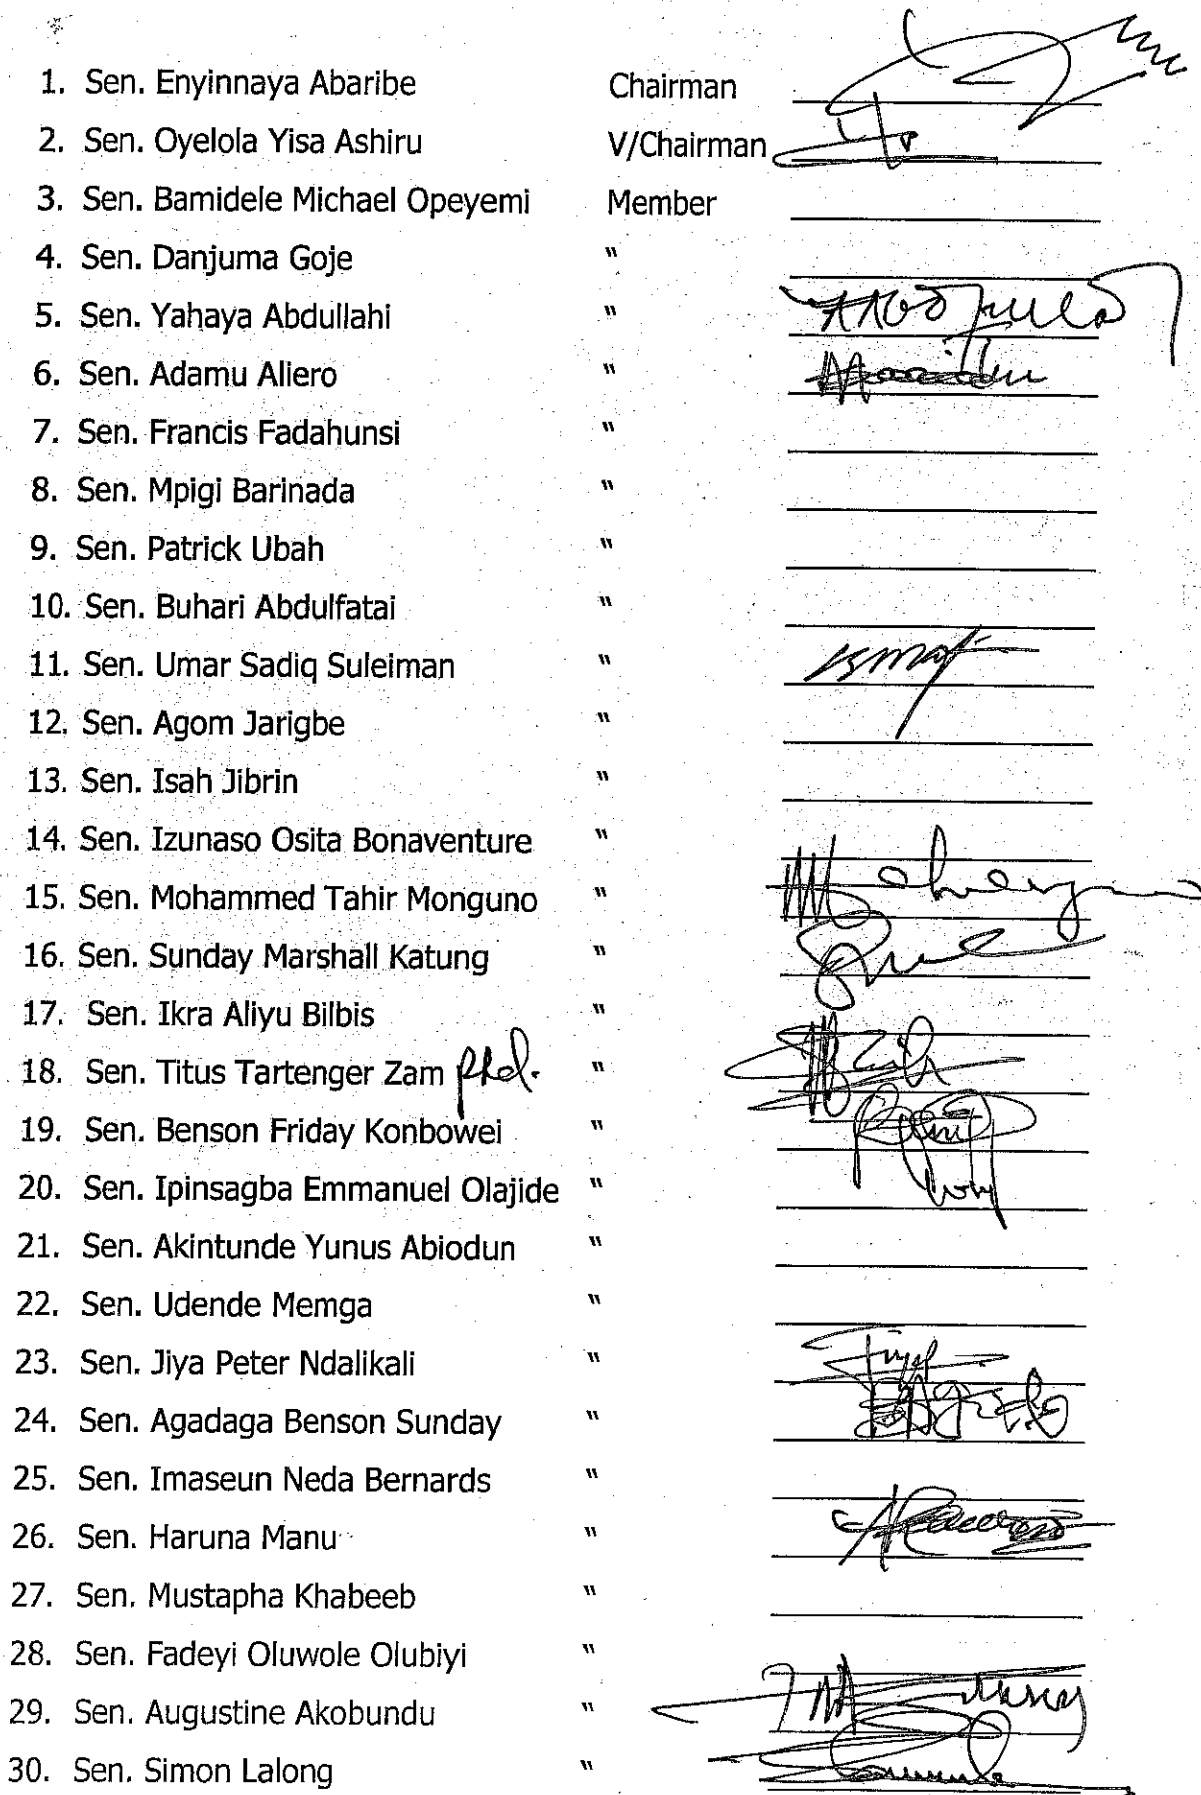 1. Sen. Enyinnaya Abaribe Chairman
2. Sen. Oyelola Yisa Ashiru V/Chairman
3. Sen. Bamidele Michael Opeyemi Member
4. Sen. Danjuma Goje "
5. Sen. Yahaya Abdullahi "
6. Sen. Adamu Aliero "
7. Sen. Francis Fadahunsi "
8. Sen. Mpigi Barinada "
9. Sen. Patrick Ubah "
10. Sen. Buhari Abdulfatai "
11. Sen. Umar Sadiq Suleiman "
12. Sen. Agom Jarigbe "
13. Sen. Isah Jibrin "
14. Sen. Izunaso Osita Bonaventure "
15. Sen. Mohammed Tahir Monguno "
16. Sen. Sunday Marshall Katung "
17. Sen. Ikra Aliyu Bilbis "
18. Sen. Titus Tartenger Zam phd. "
19. Sen. Benson Friday Konbowei "
20. Sen. Ipinsagba Emmanuel Olajide "
21. Sen. Akintunde Yunus Abiodun "
22. Sen. Udende Memga "
23. Sen. Jiya Peter Ndalikali "
24. Sen. Agadaga Benson Sunday "
25. Sen. Imaseun Neda Bernards "
26. Sen. Haruna Manu "
27. Sen. Mustapha Khabeeb "
28. Sen. Fadeyi Oluwole Olubiyi "
29. Sen. Augustine Akobundu "
30. Sen. Simon Lalong "